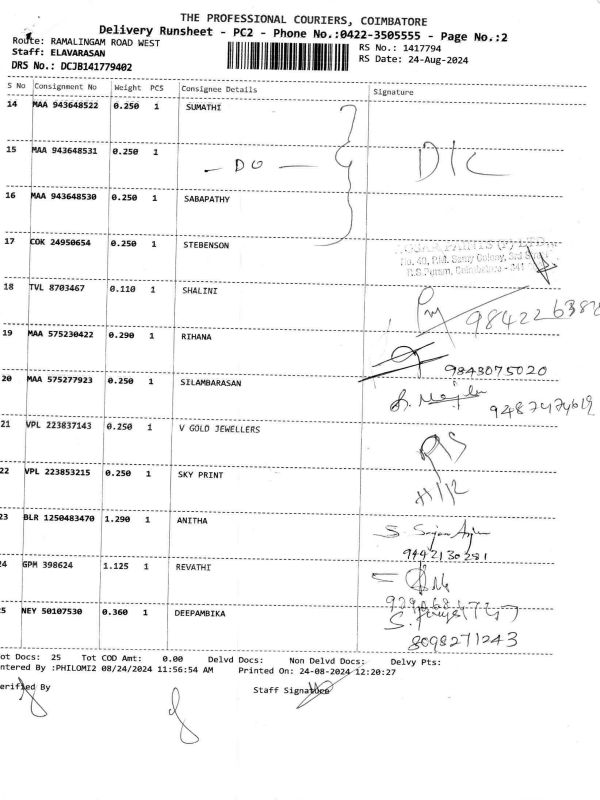 THE PROFESSIONAL COURIERS, COIMBATORE
Delivery Runsheet - PC2 - Phone No.:0422-3505555 - Page No.:2
Route: RAMALINGAM ROAD WEST
RS No.: 1417794
Staff: ELAVARASAN
RS Date: 24-Aug-2024
DRS No.: DCJB141779402
S No Consignment No Weight PCS Consignee Details Signature
14 MAA 943648522 0.250 1 SUMATHI
15 MAA 943648531 0.250 1 - DO - D/C
16 MAA 943648530 0.250 1 SABAPATHY
17 COK 24950654 0.250 1 STEBENSON
No. 40, P.M. Samy Colony, 3rd Street
R.S Puram, Coimbatore - 641
18 TVL 8703467 0.110 1 SHALINI
19 MAA 575230422 0.290 1 RIHANA 9843075020
20 MAA 575277923 0.250 1 SILAMBARASAN 9487474619
21 VPL 223837143 0.250 1 V GOLD JEWELLERS
22 VPL 223853215 0.250 1 SKY PRINT
23 BLR 1250483470 1.290 1 ANITHA
9442130281
24 GPM 398624 1.125 1 REVATHI
25 NEY 50107530 0.360 1 DEEPAMBIKA
8098271243
ot Docs: 25 Tot COD Amt: 0.00 Delvd Docs: Non Delvd Docs: Delvy Pts:
ntered By :PHILOMI2 08/24/2024 11:56:54 AM Printed On: 24-08-2024 12:20:27
erified By Staff Signature